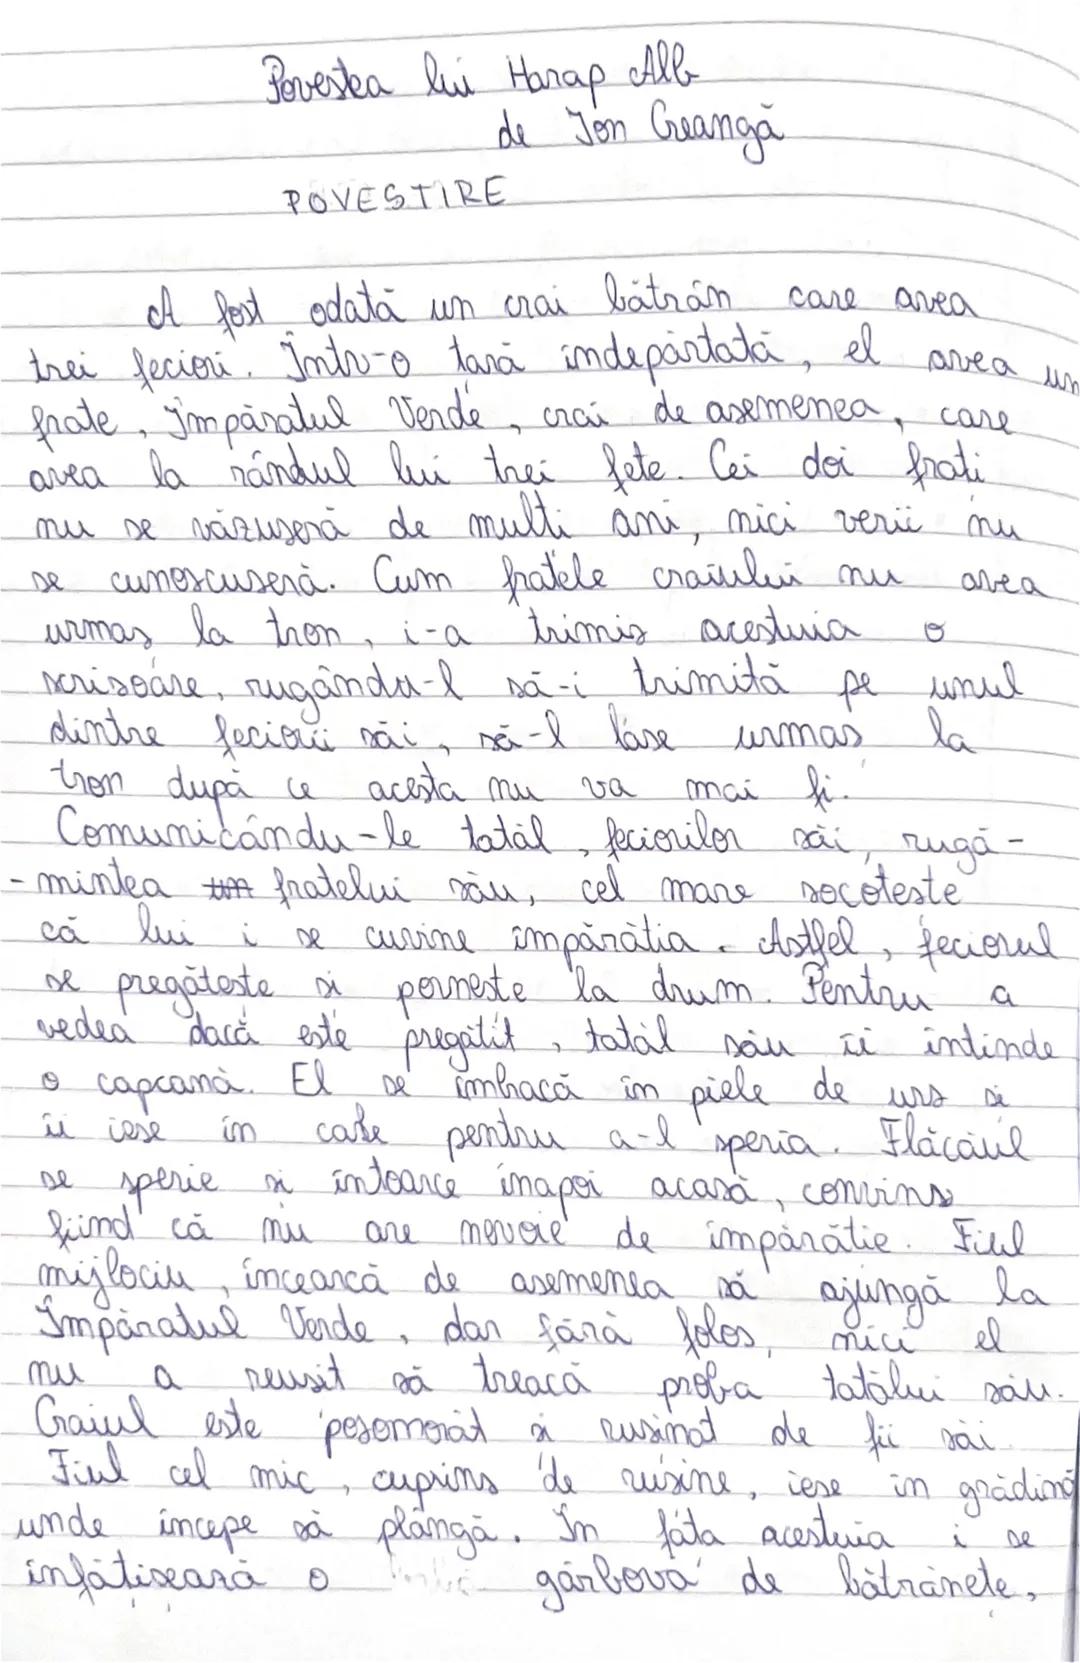 Povestea lui Harap Alb
de Ion Creangă
POVESTIRE
A fost odată un crai bătrân care avea
trei feciori. Într-o țară îndepărtată, el avea un
frate, Împăratul Verde, crai de asemenea, care
avea la rândul lui trei fete. Cei doi frați
nu se văzuseră de mulți ani, nici verii nu
se cunoscuseră. Cum fratele craiului nu avea
urmaș la tron, i-a trimis acestuia o
scrisoare, rugându-l să-i trimită pe unul
dintre feciorii săi, să-l lase urmaș la
tron după ce acesta nu va mai fi.
Comunicându-le tatăl, feciorilor săi, rugă-
-mintea fratelui său, cel mare socotește
că lui i se cuvine împărăția. Astfel, feciorul
se pregătește și pornește la drum. Pentru a
vedea dacă este pregătit, tatăl său îi întinde
o capcană. El se îmbracă în piele de urs și
îi iese în cale pentru a-l speria. Flăcăul
se sperie și întoarce înapoi acasă, convins
fiind că nu are nevoie de împărăție. Fiul
mijlociu, încearcă de asemenea să ajungă la
Împăratul Verde, dar fără folos, nici el
nu a reușit să treacă proba tatălui său.
Craiul este posomorât și rușinat de fii săi.
Fiul cel mic, cuprins de rușine, iese în grădină
unde începe să plângă. În fața acestuia i se
înfățișează o gârbovă de bătrânețe,